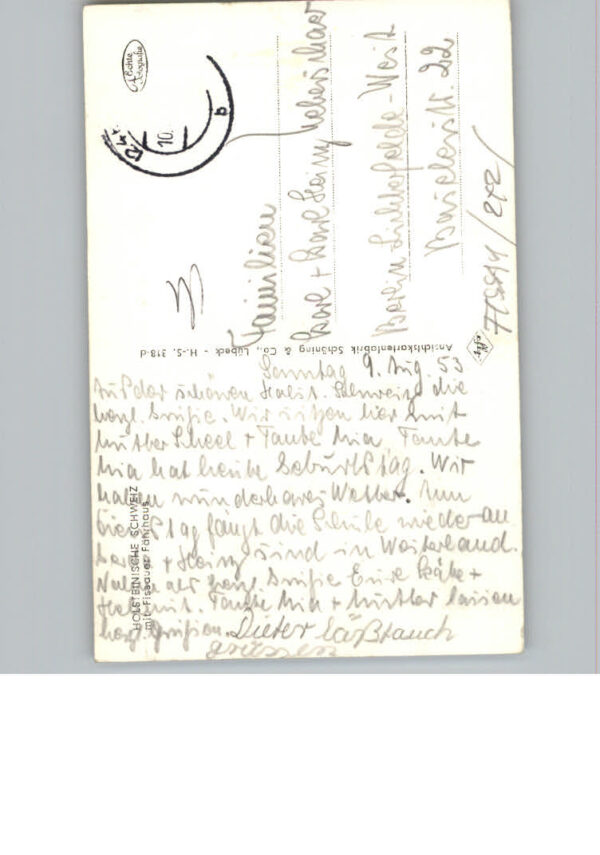 Sonntag 9. Aug. 53
Aus der schönen Holst. Schweiz die
herzl. Grüße. Wir sitzen hier mit
Mutter Scheel + Tante Mia. Tante
Mia hat heute Geburtstag. Wir
haben wunderbares Wetter. Am
Dienstag fängt die Schule wieder an
+ Heinz sind in Westerland.
herzl. Grüße Eure Käte +
Hellmut. Tante Mia + Mutter lassen
herzl. grüßen. Dieter läßt auch
grüssen
Familien
Karl + Karl Heinz
Berlin Lichterfelde-West
Baselerstr. 22
Echte Fotografie
10.
b
Ansichtskartenfabrik Schöning & Co., Lübeck - H.-S. 318-d
HOLSTEINISCHE SCHWEIZ
mit Fissauer Fährhaus